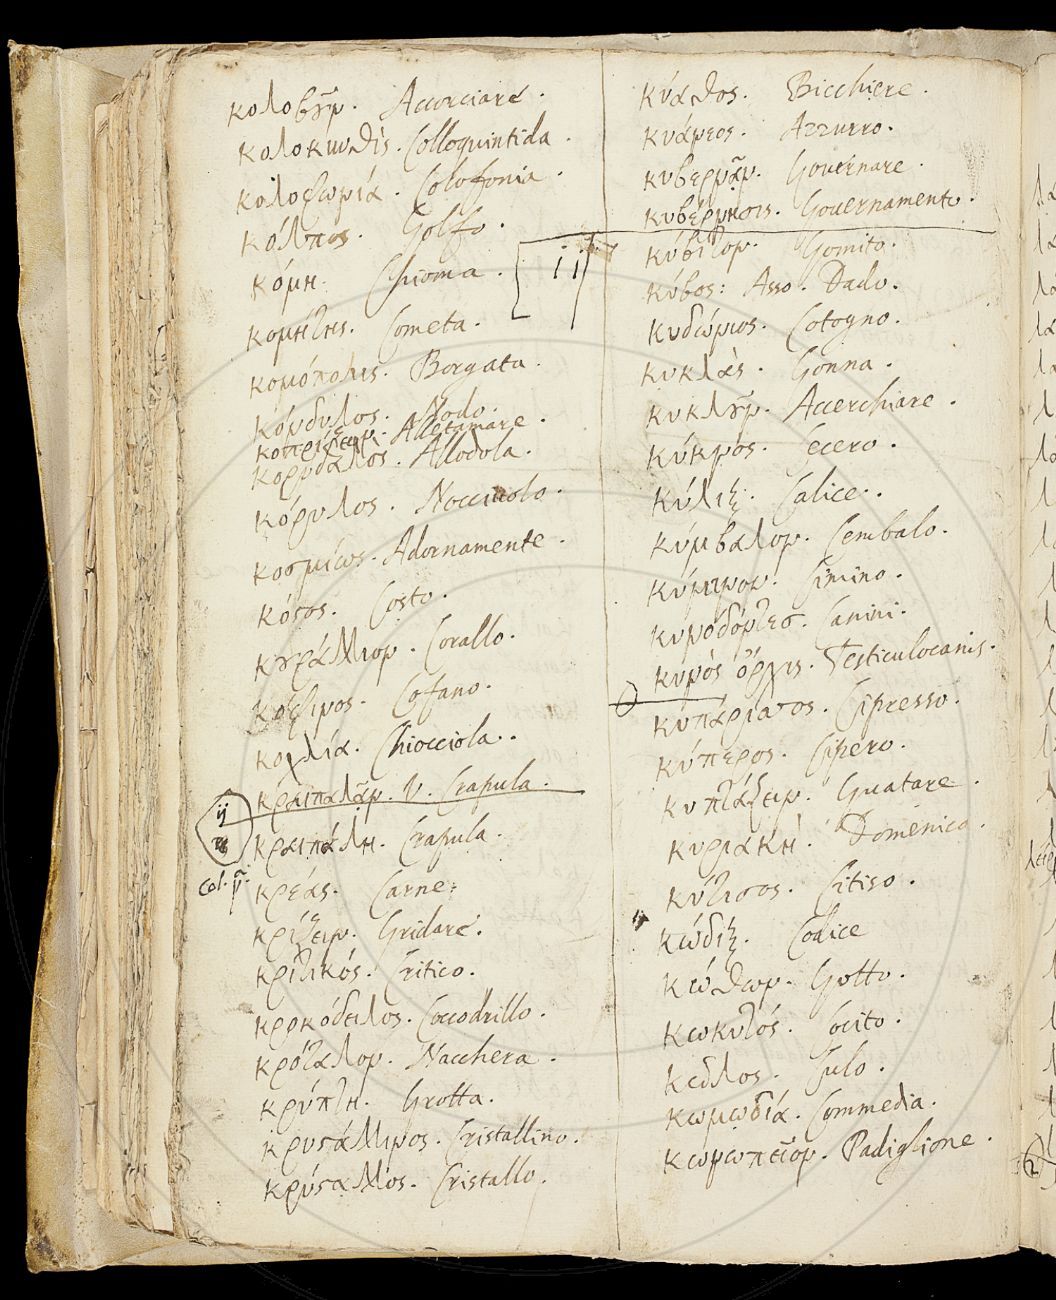 κολοβοῦν. Accorciare.
κολοκυνθὶς. Colloquintida.
κολοφωνία. Colofonia.
κόλπος. Golfo.
κόμη. Chioma.
κομήτης. Cometa.
κομόπολις. Borgata.
κόνδυλος. Nodo.
κοπρίζειν. Alletamare.
κορύδαλος. Allodola.
κόρυλος. Nocciuolo.
κοσμίως. Adornamente.
κόστος. Costo.
κουράλλιον. Corallo.
κόφινος. Cofano.
κοχλία. Chiocciola.
κραιπαλᾶν. V. Crapula.
ij
κραιπάλη. Crapula.
col. ij.
κρέας. Carne.
κρίζειν. Gridare.
κριτικός. Critico.
κροκόδειλος. Coccodrillo.
κρόταλον. Nacchera.
κρύπτη. Grotta.
κρυστάλλινος. Cristallino.
κρύσταλλος. Cristallo.
κύαθος. Bicchiere.
κυάνεος. Azzurro.
κυβερνᾶν. Governare.
κυβέρνησις. Governamento.
κύβιτον. Gomito.
κύβος: Asso. Dado.
κυδώνιος. Cotogno.
κυκλὰς. Gonna.
κυκλοῦν. Accerchiare.
κύκνος. Cecero.
κύλιξ. Calice.
κύμβαλον. Cembalo.
κύμινον. Cimino.
κυνόδοντες. Canini.
κυνὸς ὄρχις. Testiculocanis.
κυπάρισσος. Cipresso.
κύπερος. Cipero.
κυπτάζειν. Guatare.
κυριακὴ. Domenica.
κύτισος. Citiso.
κώδιξ. Codice
κώθων. Gotto.
κωκυτός. Cocito.
κωμῳδία. Commedia.
κωνωπεῖον. Padiglione.